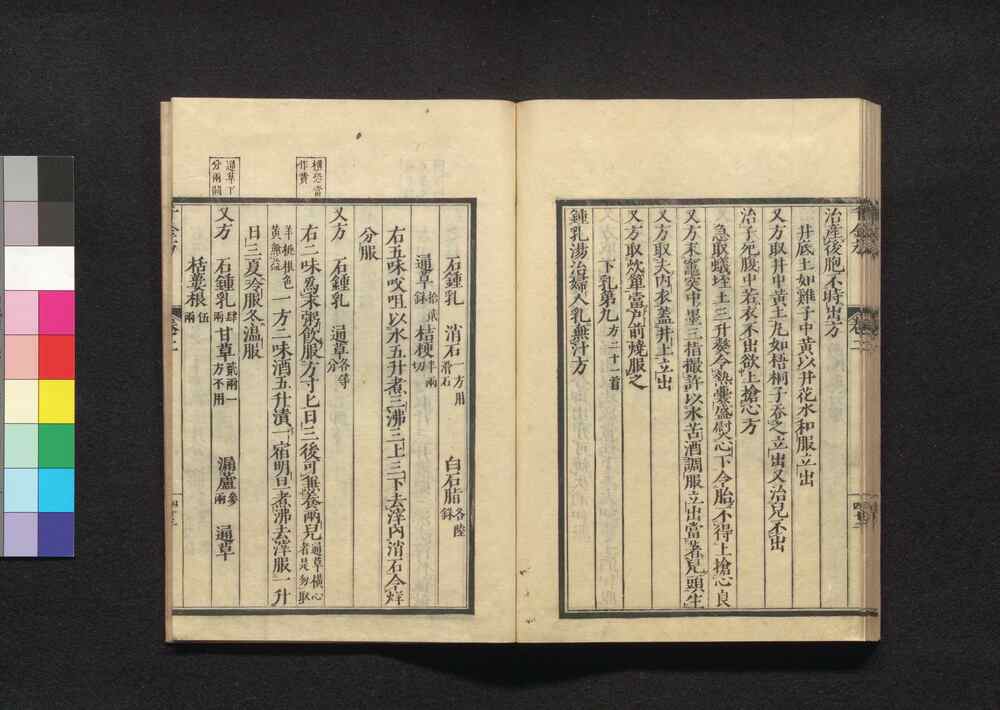 治產後胞不時出方
井底土如雞子中黃以井花水和服立出
又方取井中黃土丸如梧桐子吞之立出又治兒不出
治子死腹中若衣不出欲上搶心方
急取蟻垤土三升熬令熱囊盛熨心下令胎不得上搶心良
又方末竈突中墨三指撮許以水苦酒調服立出當著兒頭生
又方取夫內衣蓋井上立出
又方取炊箄當戶前燒服之
下乳第九方二十一首
鍾乳湯治婦人乳無汁方
石鍾乳 消石一方用滑石 白石脂各陸銖
通草拾貳銖 桔梗半兩切
右五味㕮咀以水五升煮三沸三上三下去滓內消石令烊
分服
又方 石鍾乳 通草各等分
右二味為末粥飲服方寸匕日三後可兼養兩兒通草橫心者是勿取
羊桃根色黃無益一方二味酒五升漬一宿明旦煮沸去滓服一升
日三夏冷服冬溫服
又方 石鍾乳肆兩 甘草貳兩一方不用 漏蘆參兩 通草
栝蔞根伍兩
橫恐當作黃
通草下分兩闕
千金方
卷二